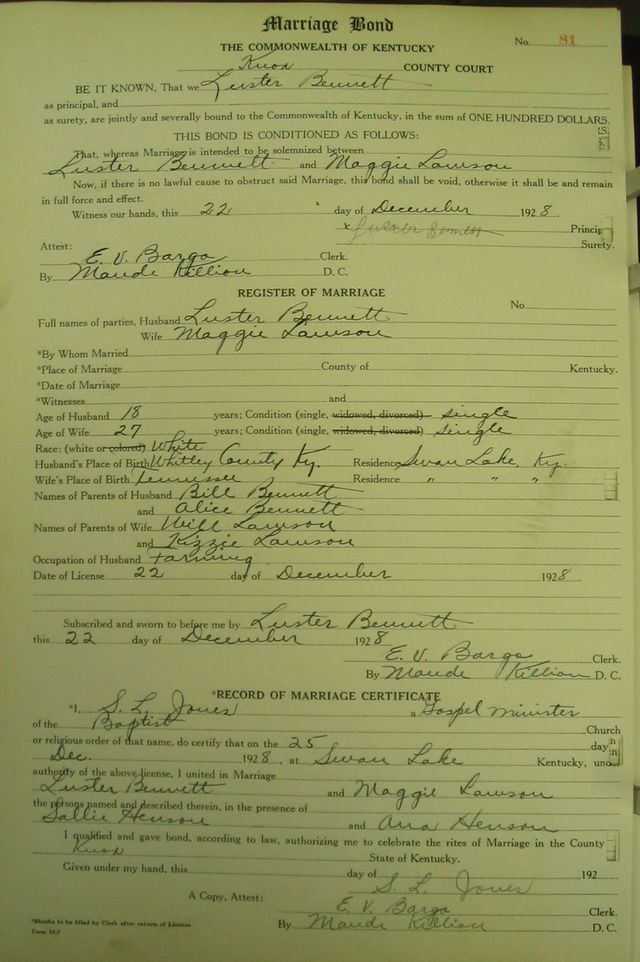 Marriage Bond
THE COMMONWEALTH OF KENTUCKY No. 81
Knox COUNTY COURT
BE IT KNOWN, That we Luster Bennett
as principal, and
as surety, are jointly and severally bound to the Commonwealth of Kentucky, in the sum of ONE HUNDRED DOLLARS.
THIS BOND IS CONDITIONED AS FOLLOWS:
That, whereas Marriage is intended to be solemnized between
Luster Bennett and Maggie Lawson
Now, if there is no lawful cause to obstruct said Marriage, this bond shall be void, otherwise it shall be and remain
in full force and effect.
Witness our hands, this 22 day of December 1928.
x Luster Bennett Princip
Attest: Surety.
E. V. Bargo Clerk.
By Maude Killion D. C.
REGISTER OF MARRIAGE
No
Full names of parties, Husband Luster Bennett
Wife Maggie Lawson
*By Whom Married
*Place of Marriage County of Kentucky.
*Date of Marriage
*Witnesses and
Age of Husband 18 years; Condition (single, widowed, divorced) single
Age of Wife 27 years; Condition (single, widowed, divorced) single
Race: (white or colored) White
Husband's Place of Birth Whitley County Ky. Residence Swan Lake, Ky.
Wife's Place of Birth Tennessee Residence " " "
Names of Parents of Husband Bill Bennett
and Alice Bennett
Names of Parents of Wife Will Lawson
and Kizzie Lawson
Occupation of Husband Farming
Date of License 22 day of December 1928
Subscribed and sworn to before me by Luster Bennett
this 22 day of December 1928
E. V. Bargo Clerk.
By Maude Killion D. C.
*RECORD OF MARRIAGE CERTIFICATE
*I, S. L. Jones a Gospel minister
of the Baptist Church
or religious order of that name, do certify that on the 25 day
Dec. 1928, at Swan Lake Kentucky, und
authority of the above license, I united in Marriage
Luster Bennett and Maggie Lawson
the persons named and described therein, in the presence of
Sallie Henson and Ana Henson
I qualified and gave bond, according to law, authorizing me to celebrate the rites of Marriage in the County
Knox State of Kentucky.
Given under my hand, this day of 192
S. L. Jones
A Copy, Attest: E. V. Bargo Clerk.
By Maude Killion D. C.
*Blanks to be filled by Clerk after return of License